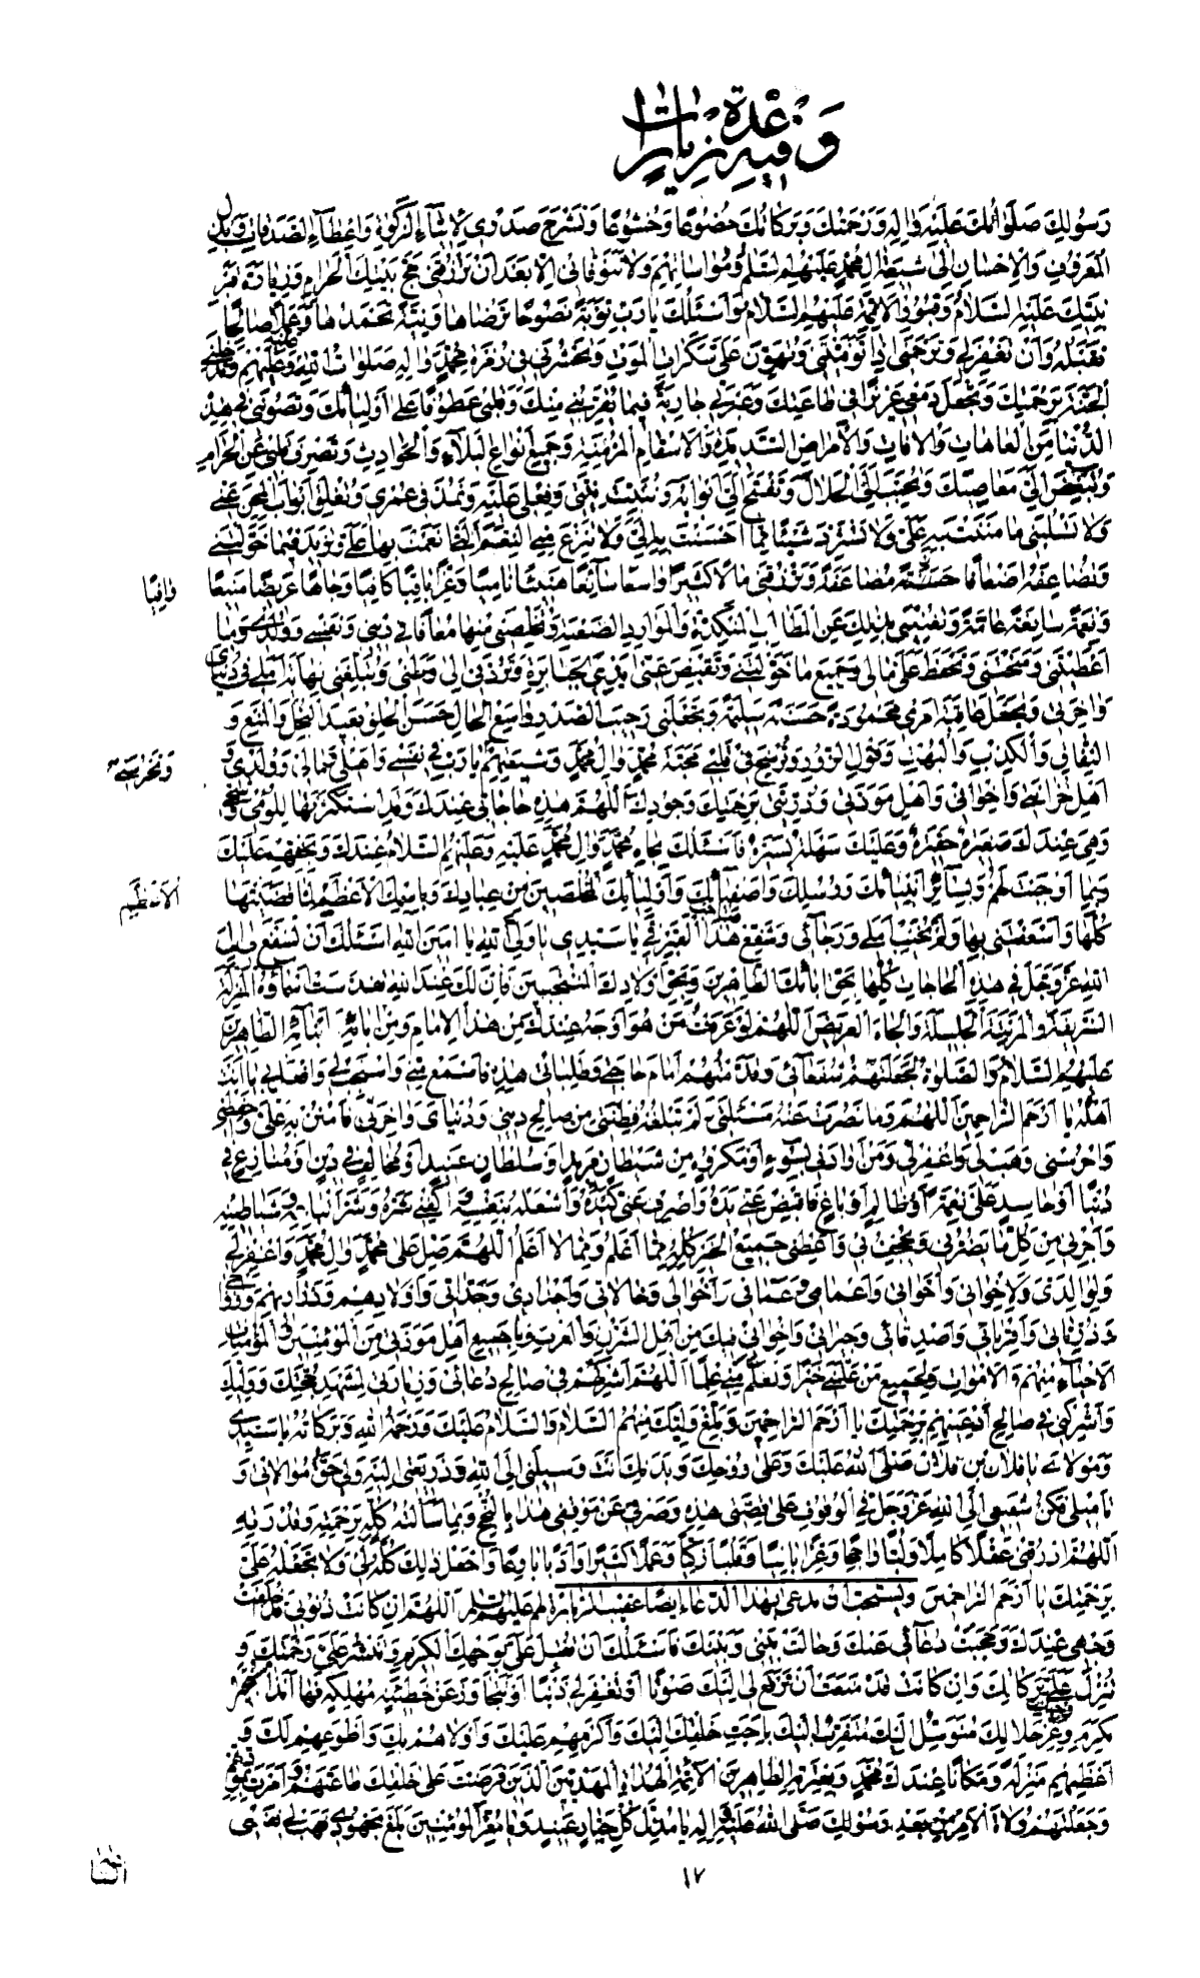 وَفيهِ عْدة زِيارات
رَسُولِكَ صَلَوٰاتُكَ عَلَيْهِ وَاٰلِهِ وَرَحْمَتُكَ وَبَرَكٰاتُكَ خُضُوعًا وَخُشُوعًا وَتَشْرَحَ صَدْرى لِايٖتٰآءِ الزَّكوٰةِ وَاِعْطٰآءِ الصَّدَقٰاتِ وَبَذْلِ
الْمَعْرُوفِ وَالْاِحْسٰانِ اِلىٰ شٖيعَةِ اٰلِ مُحَمَّدٍ عَلَيْهِمُ السَّلٰامُ وَمُوٰاسٰاتِهِمْ وَلٰا تَتَوَفّٰانى اِلّٰا بَعْدَ اَنْ تَرْزُقَنى حَجَّ بَيْتِكَ الْحَرٰامِ وَزِيٰارَةَ قَبْرِ
نَبِيِّكَ عَلَيْهِ السَّلٰامُ وَقُبُورِ الْاَئِمَّةِ عَلَيْهِمُ السَّلٰامُ وَاَسْئَلُكَ يٰا رَبِّ تَوْبَةً نَصُوحًا تَرْضٰاهٰا وَنِيَّةً تَحْمَدُهٰا وَعَمَلًا صٰالِحًا
تَقْبَلُهُ وَاَنْ تَغْفِرَ لى وَتَرْحَمَنى اِذٰا تَوَفَّيْتَنى وَتُهَوِّنَ عَلَىَّ سَكَرٰاتِ الْمَوْتِ وَتَحْشُرَنى فى زُمْرَةِ مُحَمَّدٍ وَاٰلِهِ صَلَوٰاتُ اللّٰهِ عَلَيْهِ وَعَلَيْهِمْ وَتُدْخِلَنِى
الْجَنَّةَ بِرَحْمَتِكَ وَتَجْعَلَ دَمْعى غَزيرًا فى طٰاعَتِكَ وَعَبْرَتى جٰارِيَةً فيمٰا يُقَرِّبُنى مِنْكَ وَقَلْبى عَطُوفًا عَلىٰ اَوْلِيٰائِكَ وَتَصُونَنى فى هٰذِهِ
الدُّنْيٰا مِنَ الْعٰاهٰاتِ وَالْاٰفٰاتِ وَالْاَمْرٰاضِ الشَّديدَةِ وَالْاَسْقٰامِ الْمُزْمِنَةِ وَجَميعِ اَنْوٰاعِ الْبَلٰاءِ وَالْحَوٰادِثِ وَتَصْرِفَ قَلْبى عَنِ الْحَرٰامِ
وَتُبَغِّضَ اِلَىَّ مَعٰاصِيَكَ وَتُحَبِّبَ اِلَىَّ الْحَلٰالَ وَتَفْتَحَ لى اَبْوٰابَهُ وَتُثَبِّتَ نِيَّتى وَفِعْلى عَلَيْهِ وَتَمُدَّ فى عُمْرى وَتُغْلِقَ اَبْوٰابَ الْمِحَنِ عَنّى
وَلٰا تَسْلُبَنى مٰا مَنَنْتَ بِهِ عَلَىَّ وَلٰا تَسْتَرِدَّ شَيْئًا مِمّٰا اَحْسَنْتَ بِهِ اِلَىَّ وَلٰا تَنْزِعَ مِنّى النِّعَمَ الَّتى اَنْعَمْتَ بِهٰا عَلَىَّ وَتَزيدَ فيمٰا خَوَّلْتَنى
وَتُضٰاعِفَهُ اَضْعٰافًا مُضٰاعَفَةً وَتَرْزُقَنى مٰالًا كَثيرًا وٰاسِعًا سٰائِغًا هَنيئًا نٰامِيًا وَعِزًّا بٰاقِيًا كٰافِيًا وَجٰاهًا عَريضًا مَنيعًا
وٰافِيًا
وَنِعْمَةً سٰابِغَةً عٰامَّةً وَتُغْنِيَنى بِذٰلِكَ عَنِ الْمَطٰالِبِ الْمُنَكَّدَةِ وَالْمَوٰارِدِ الصَّعْبَةِ وَتُخَلِّصَنى مِنْهٰا مُعٰافًا فى دينى وَنَفْسى وَوُلْدى وَمٰا
اَعْطَيْتَنى وَمَنَحْتَنى وَتَحْفَظَ عَلَىَّ مٰالى وَجَميعَ مٰا خَوَّلْتَنى وَتَقْبِضَ عَنّى اَيْدِىَ الْجَبٰابِرَةِ وَتَرُدَّنى اِلىٰ وَطَنى وَتُبَلِّغَنى نِهٰايَةَ اَمَلى فى دُنْيٰاىَ
وَاٰخِرَتى وَتَجْعَلَ عٰاقِبَةَ اَمْرى مَحْمُودَةً حَسَنَةً سَليمَةً وَتَجْعَلَنى رَحيبَ الصَّدْرِ وٰاسِعَ الْحٰالِ حَسَنَ الْخُلْقِ بَعيدًا مِنَ الْبُخْلِ وَالْمَنْعِ وَ
النِّفٰاقِ وَالْكَذِبِ وَالْبُهْتِ وَقَوْلِ الزُّورِ وَتُرَسِّخَ فى قَلْبى مَحَبَّةَ مُحَمَّدٍ وَاٰلِ مُحَمَّدٍ وَشيعَتِهِمْ يٰا رَبِّ فى نَفْسى وَاَهْلى وَمٰالى وَوُلْدى وَ
وَتَحْرُسَنى
اَهْلِ حُزٰانَتى وَاِخْوٰانى وَاَهْلِ مَوَدَّتى وَذُرِّيَّتى بِرَحْمَتِكَ وَجُودِكَ اَللّٰهُمَّ هٰذِهِ حٰاجٰاتى عِنْدَكَ وَقَدِ اسْتَكْثَرْتُهٰا لِلُؤْمى وَشُحّى
وَهِىَ عِنْدَكَ صَغيرَةٌ حَقيرَةٌ وَعَلَيْكَ سَهْلَةٌ يَسيرَةٌ فَاَسْئَلُكَ بِجٰاهِ مُحَمَّدٍ وَاٰلِ مُحَمَّدٍ عَلَيْهِ وَعَلَيْهِمُ السَّلٰامُ عِنْدَكَ وَبِحَقِّهِمْ عَلَيْكَ
وَبِمٰا اَوْجَبْتَ لَهُمْ وَبِسٰائِرِ اَنْبِيٰائِكَ وَرُسُلِكَ وَاَصْفِيٰائِكَ وَاَوْلِيٰائِكَ الْمُخْلَصينَ مِنْ عِبٰادِكَ وَبِاسْمِكَ الْاَعْظَمِ لَمّٰا قَضَيْتَهٰا
الْاَعْظَمِ
كُلَّهٰا وَاَسْعَفْتَنى بِهٰا وَلَمْ تُخَيِّبْ اَمَلى وَرَجٰآئى وَشَفِّعْ صٰاحِبَ هٰذَا الْقَبْرِ فِىَّ يٰا سَيِّدى يٰا وَلِىَّ اللّٰهِ يٰا اَمينَ اللّٰهِ اَسْئَلُكَ اَنْ تَشْفَعَ لى اِلَى
اللّٰهِ عَزَّ وَجَلَّ فى هٰذِهِ الْحٰاجٰاتِ كُلِّهٰا بِحَقِّ اٰبٰائِكَ الطّٰاهِرينَ وَبِحَقِّ اَوْلٰادِكَ الْمُنْتَجَبينَ فَاِنَّ لَكَ عِنْدَ اللّٰهِ تَقَدَّسَتْ اَسْمٰاؤُهُ الْمَنْزِلَةَ
الشَّريفَةَ وَالْمَرْتَبَةَ الْجَليلَةَ وَالْجٰاهَ الْعَريضَ اَللّٰهُمَّ لَوْ عَرَفْتُ مَنْ هُوَ اَوْجَهُ عِنْدَكَ مِنْ هٰذَا الْاِمٰامِ وَمِنْ اٰبٰائِهِ وَاَبْنٰائِهِ الطّٰاهِرينَ
عَلَيْهِمُ السَّلٰامُ وَالصَّلوٰةُ لَجَعَلْتُهُمْ شُفَعٰآئى وَقَدَّمْتُهُمْ اَمٰامَ حٰاجَتى وَطَلِبٰاتى هٰذِهِ فَاسْمَعْ مِنّى وَاسْتَجِبْ لى وَافْعَلْ بى مٰا اَنْتَ
اَهْلُهُ يٰا اَرْحَمَ الرّٰاحِمينَ اَللّٰهُمَّ وَمٰا قَصُرَتْ عَنْهُ مَسْئَلَتى وَلَمْ تَبْلُغْهُ فِطْنَتى مِنْ صٰالِحِ دينى وَدُنْيٰاىَ وَاٰخِرَتى فَامْنُنْ بِهِ عَلَىَّ وَاحْفَظْنى
وَاحْرُسْنى وَهَبْ لى وَاغْفِرْ لى وَمَنْ اَرٰادَنى بِسُوٓءٍ اَوْ مَكْرُوهٍ مِنْ شَيْطٰانٍ مَريدٍ اَوْ سُلْطٰانٍ عَنيدٍ اَوْ مُخٰالِفٍ فى دينٍ اَوْ مُنٰازِعٍ فى
دُنْيٰا اَوْ حٰاسِدٍ عَلَىَّ نِعْمَةً اَوْ ظٰالِمٍ اَوْ بٰاغٍ فَاقْبِضْ عَنّى يَدَهُ وَاصْرِفْ عَنّى كَيْدَهُ وَاشْغَلْهُ بِنَفْسِهِ وَاكْفِنى شَرَّهُ وَشَرَّ اَتْبٰاعِهِ وَشَيٰاطينِهِ
وَاَجِرْنى مِنْ كُلِّ مٰا يَضُرُّنى وَيُجْحِفُ بى وَاَعْطِنى جَميعَ الْخَيْرِ كُلِّهِ مِمّٰا اَعْلَمُ وَمِمّٰا لٰا اَعْلَمُ اَللّٰهُمَّ صَلِّ عَلىٰ مُحَمَّدٍ وَاٰلِ مُحَمَّدٍ وَاغْفِرْ لى
وَلِوٰالِدَىَّ وَلِاِخْوٰانى وَاَخَوٰاتى وَاَعْمٰامى وَعَمّٰاتى وَاَخْوٰالى وَخٰالٰاتى وَاَجْدٰادى وَجَدّٰاتى وَاَوْلٰادِهِمْ وَذَرٰاريهِمْ وَاَزْوٰاجى
وَذُرِّيّٰاتى وَاَقْرِبٰائى وَاَصْدِقٰائى وَجيرٰانى وَاِخْوٰانى فيكَ مِنْ اَهْلِ الشَّرْقِ وَالْغَرْبِ وَلِجَميعِ اَهْلِ مَوَدَّتى مِنَ الْمُؤْمِنينَ وَالْمُؤْمِنٰاتِ
الْاَحْيٰآءِ مِنْهُمْ وَالْاَمْوٰاتِ وَلِجَميعِ مَنْ عَلَّمَنى خَيْرًا اَوْ تَعَلَّمَ مِنّى عِلْمًا اَللّٰهُمَّ اَشْرِكْهُمْ فى صٰالِحِ دُعٰائى وَزِيٰارَتى لِمَشْهَدِ حُجَّتِكَ وَوَلِيِّكَ
وَاَشْرِكْنى فى صٰالِحِ اَدْعِيَتِهِمْ بِرَحْمَتِكَ يٰا اَرْحَمَ الرّٰاحِمينَ وَبَلِّغْ وَلِيَّكَ مِنْهُمُ السَّلٰامَ وَالسَّلٰامُ عَلَيْكَ وَرَحْمَةُ اللّٰهِ وَبَرَكٰاتُهُ يٰا سَيِّدى
وَمَوْلٰاىَ يٰا فُلٰانَ بْنَ فُلٰانٍ صَلَّى اللّٰهُ عَلَيْكَ وَعَلىٰ رُوحِكَ وَبَدَنِكَ اَنْتَ وَسيلَتى اِلَى اللّٰهِ وَذَريعَتى اِلَيْهِ وَلى حَقُّ مُوٰالٰاتى وَ
تَاْميلى فَكُنْ شَفيعى اِلَى اللّٰهِ عَزَّ وَجَلَّ فى الْوُقُوفِ عَلىٰ قِصَّتى هٰذِهِ وَصَرْفى عَنْ مَوْقِفى هٰذٰا بِالنُّجْحِ وَبِمٰا سَاَلْتُهُ كُلِّهِ بِرَحْمَتِهِ وَقُدْرَتِهِ
اَللّٰهُمَّ ارْزُقْنى عَقْلًا كٰامِلًا وَلُبًّا رٰاجِحًا وَعِزًّا بٰاقِيًا وَقَلْبًا زَكِيًّا وَعَمَلًا كَثيرًا وَاَدَبًا بٰارِعًا وَاجْعَلْ ذٰلِكَ كُلَّهُ لى وَلٰا تَجْعَلْهُ عَلَىَّ
بِرَحْمَتِكَ يٰا اَرْحَمَ الرّٰاحِمينَ وَيُسْتَحَبُّ اَنْ يُدْعىٰ بِهٰذَا الدُّعٰاءِ اَيْضًا عَقيبَ الزِّيٰارَةِ لَهُمْ عَلَيْهِمُ السَّلٰامُ اَللّٰهُمَّ اِنْ كٰانَتْ ذُنُوبى قَدْ اَخْلَقَتْ
وَجْهى عِنْدَكَ وَحَجَبَتْ دُعٰآئى عَنْكَ وَحٰالَتْ بَيْنى وَبَيْنَكَ فَاَسْئَلُكَ اَنْ تُقْبِلَ عَلَىَّ بِوَجْهِكَ الْكَريمِ وَتَنْشُرَ عَلَىَّ رَحْمَتَكَ وَ
تُنَزِّلَ عَلَىَّ بَرَكٰاتِكَ وَاِنْ كٰانَتْ قَدْ مَنَعَتْ اَنْ تَرْفَعَ لى اِلَيْكَ صَوْتًا اَوْ تَغْفِرَ لى ذَنْبًا اَوْ تَتَجٰاوَزَ عَنْ خَطيئَةٍ مُهْلِكَةٍ فَهٰا اَنَا ذٰا مُسْتَجيرٌ
بِكَرَمِ وَجْهِكَ وَعِزِّ جَلٰالِكَ مُتَوَسِّلٌ اِلَيْكَ مُتَقَرِّبٌ اِلَيْكَ بِاَحَبِّ خَلْقِكَ اِلَيْكَ وَاَكْرَمِهِمْ عَلَيْكَ وَاَوْلٰاهُمْ بِكَ وَاَطْوَعِهِمْ لَكَ وَ
اَعْظَمِهِمْ مَنْزِلَةً وَمَكٰانًا عِنْدَكَ مُحَمَّدٍ وَبِعِتْرَتِهِ الطّٰاهِرينَ الْاَئِمَّةِ الْهُدٰاةِ الْمَهْدِيّينَ الَّذينَ فَرَضْتَ عَلىٰ خَلْقِكَ طٰاعَتَهُمْ وَاَمَرْتَ بِمَوَدَّتِهِمْ
وَجَعَلْتَهُمْ وُلٰاةَ الْاَمْرِ مِنْ بَعْدِ رَسُولِكَ صَلَّى اللّٰهُ عَلَيْهِ وَاٰلِهِ يٰا مُذِلَّ كُلِّ جَبّٰارٍ عَنيدٍ وَيٰا مُعِزَّ الْمُؤْمِنينَ بَلَغَ مَجْهُودى فَهَبْ لى نَفْسى
١٧